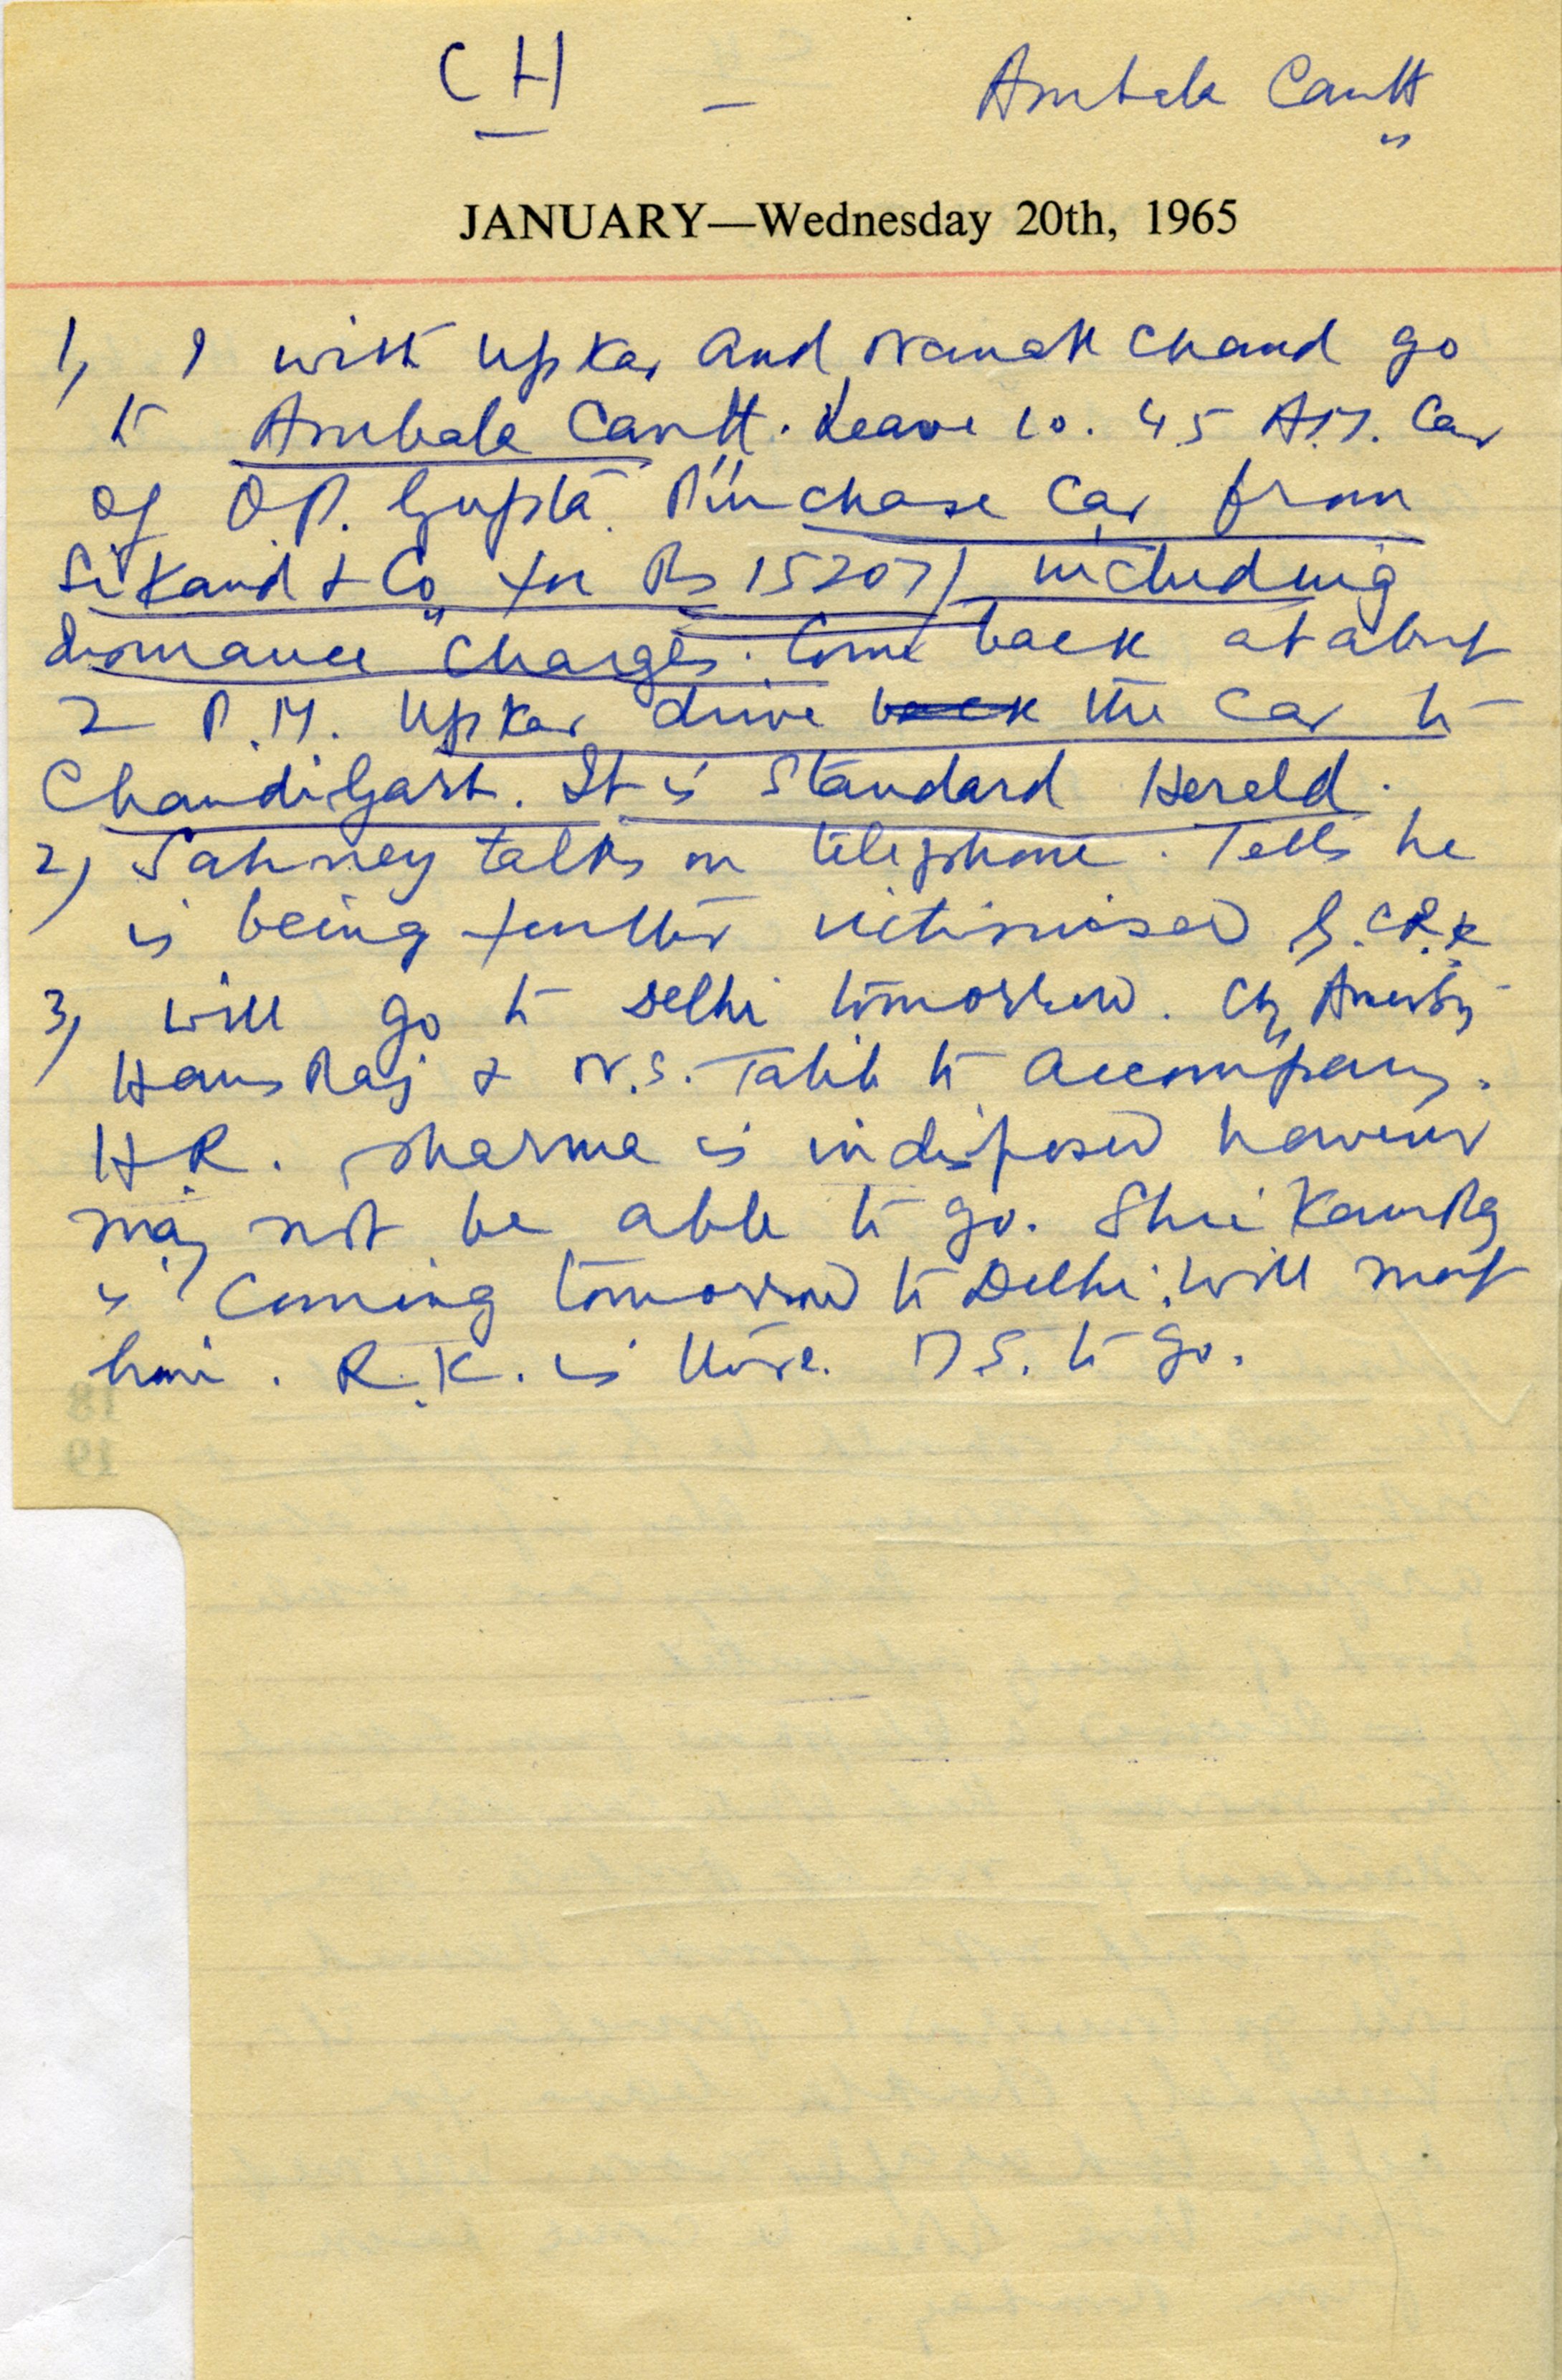 CH - Ambala Cantt
JANUARY—Wednesday 20th, 1965
1, I with Upkar and Nanak Chand go
to Ambala Cantt. Leave 10.45 A.M. Car
of O.P. Gupta. Purchase Car from
Sikand & Co for Rs 15207/ including
insurance charges. Come back at about
2 P.M. Upkar drive back the car to
Chandigarh. It is Standard Herald.
2) Sahney talks on telephone. Tells he
is being further victimised
3, will go to Delhi tomorrow. Ch,
Hans Raj & N.S. Talib to accompany.
H.R. Sharma is indisposed however
may not be able to go. Shri
is coming tomorrow to Delhi. Will meet
him. R.K. is there. D.S. to go.
18
19